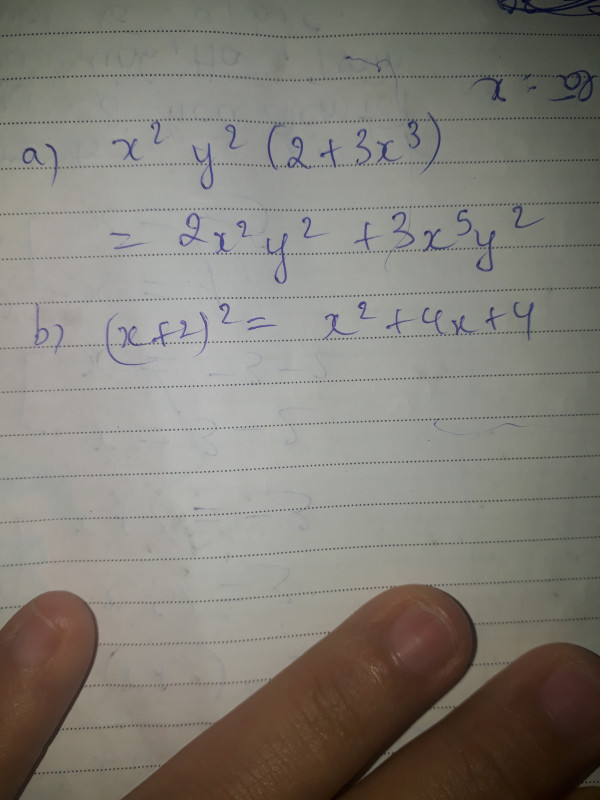 a) x² y² (2+3x³)
= 2x²y² +3x⁵y²
b) (x+2)² = x²+4x+4